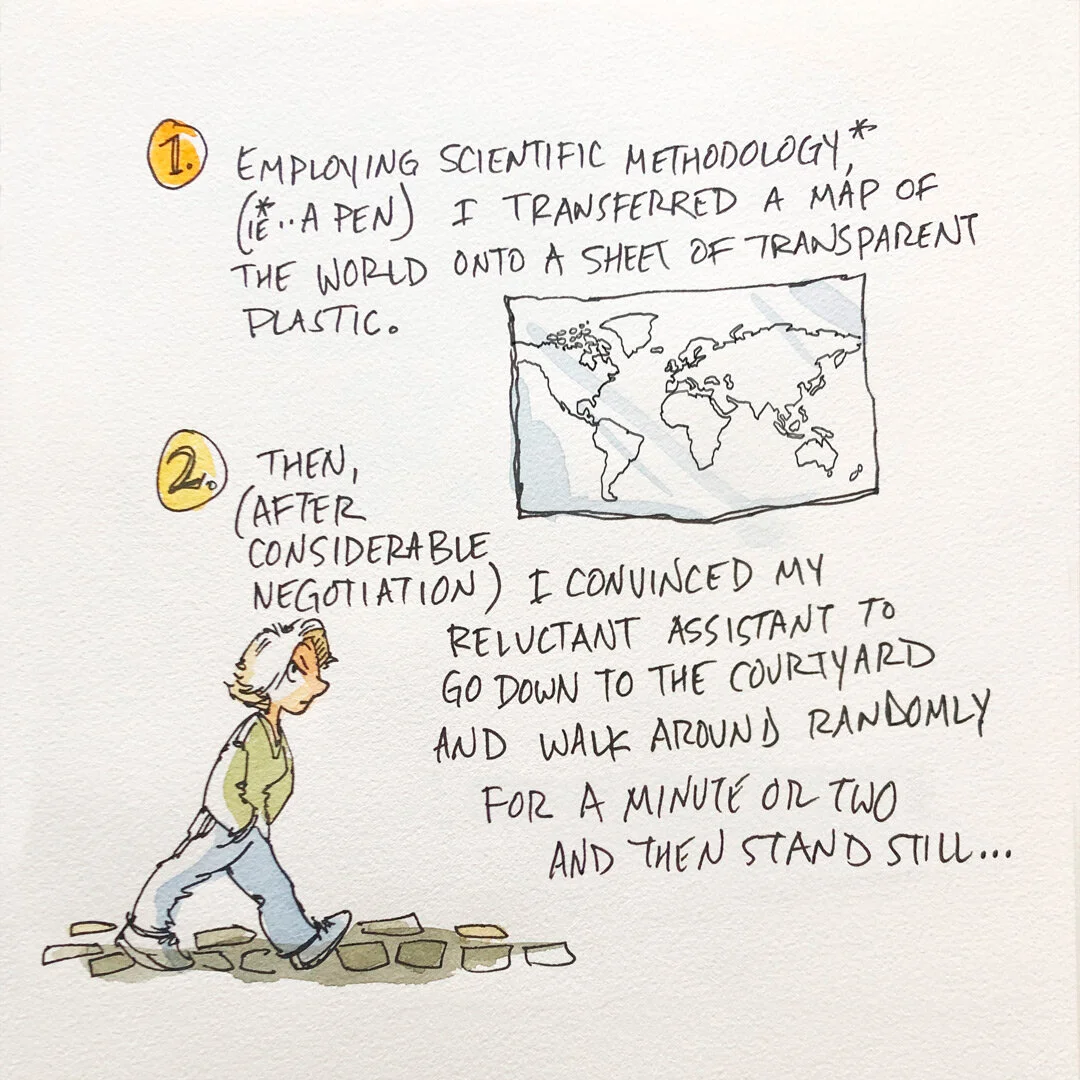 1.
EMPLOYING SCIENTIFIC METHODOLOGY,*
(*IE.. A PEN) I TRANSFERRED A MAP OF
THE WORLD ONTO A SHEET OF TRANSPARENT
PLASTIC.
2.
THEN,
(AFTER
CONSIDERABLE
NEGOTIATION) I CONVINCED MY
RELUCTANT ASSISTANT TO
GO DOWN TO THE COURTYARD
AND WALK AROUND RANDOMLY
FOR A MINUTE OR TWO
AND THEN STAND STILL...